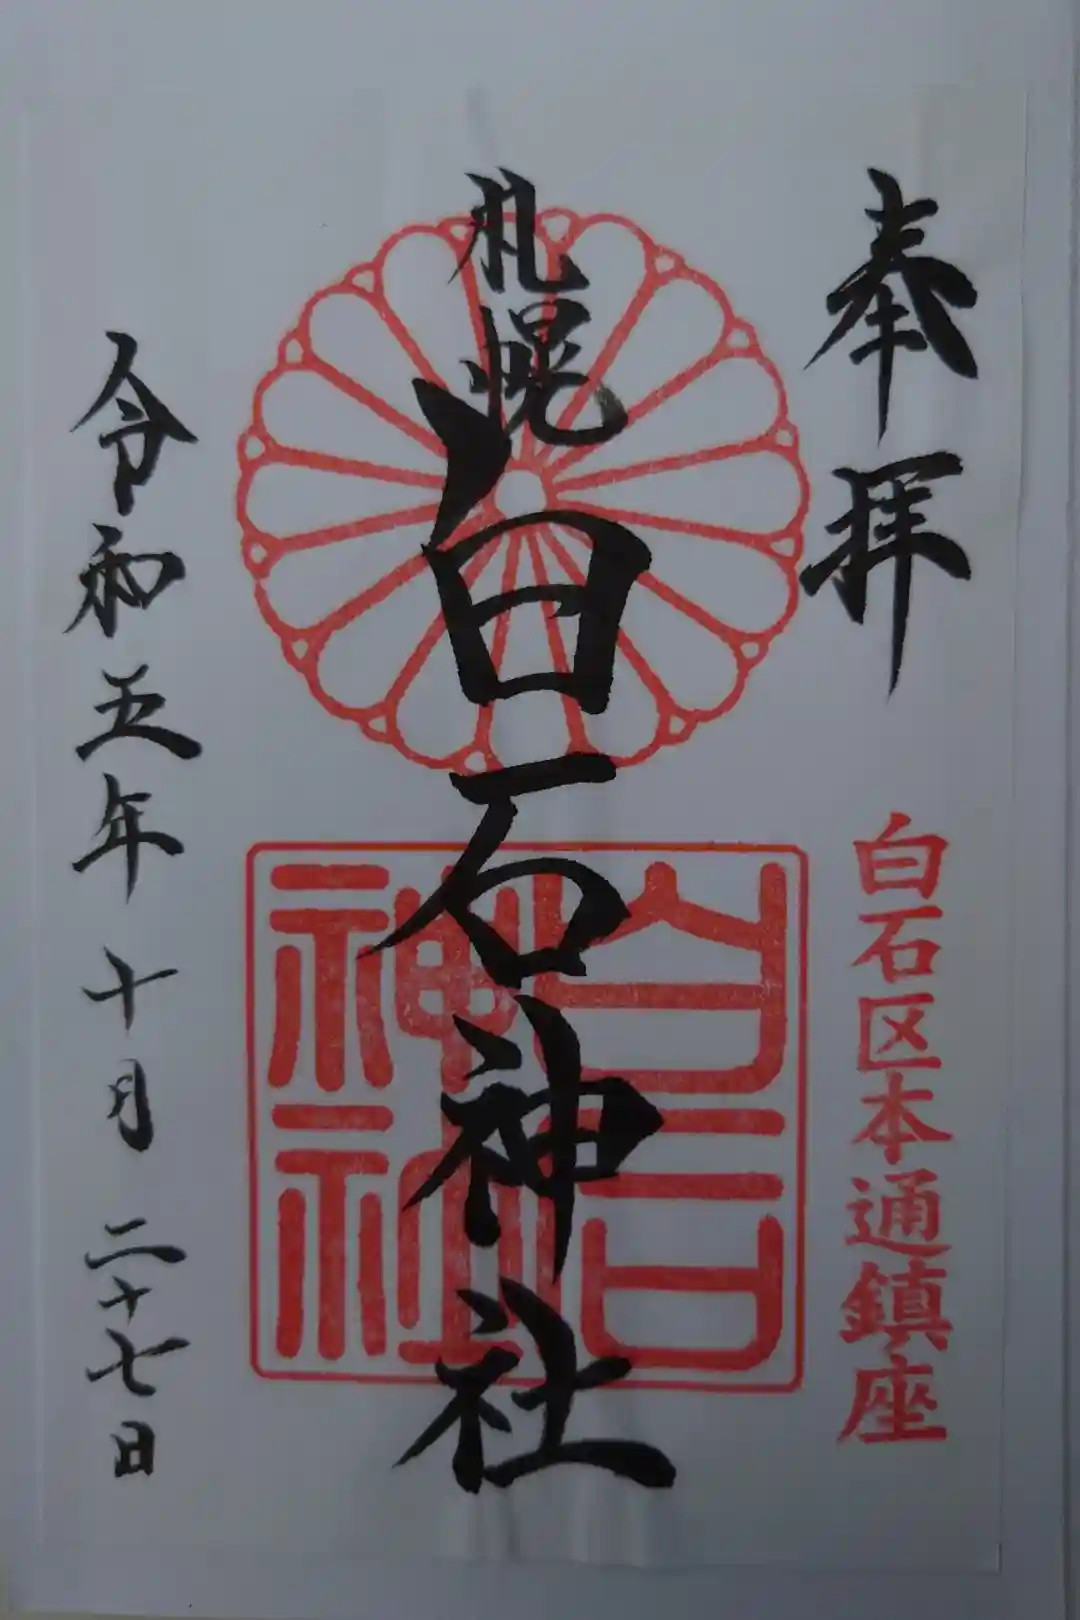 奉拝
白石区本通鎮座
札幌
白石神社
白石神社
令和五年十月二十七日